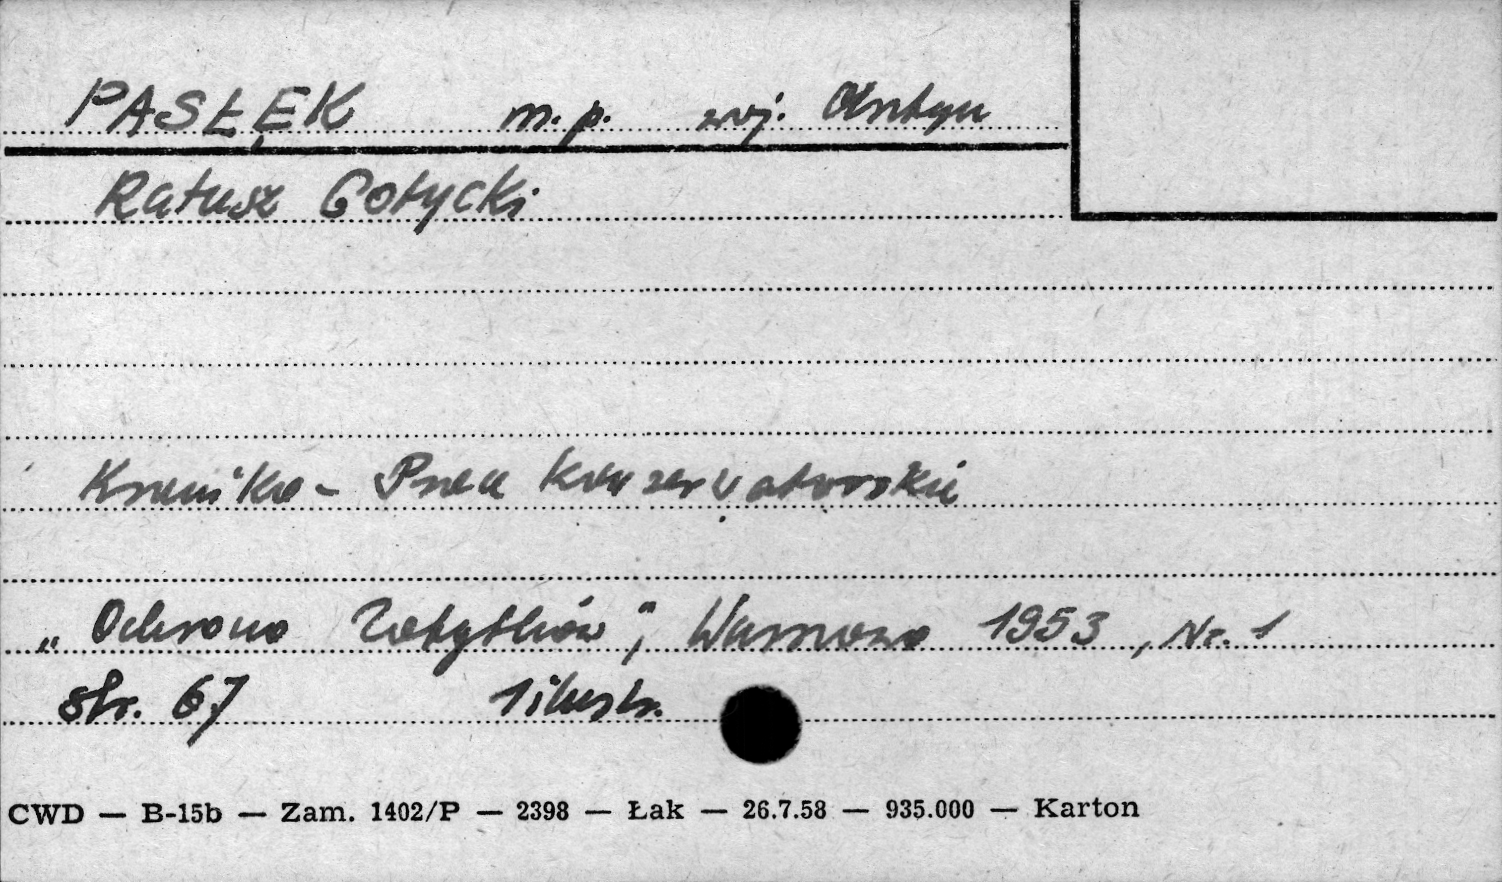 PASŁĘK m.p. woj. Olsztyn
Ratusz Gotycki
Kronika - Prace konserwatorskie
„Ochrona Zabytków", Warszawa 1953, Nr. 1
str. 67 1 ilustr.
CWD — B-15b — Zam. 1402/P — 2398 — Łak — 26.7.58 — 935.000 — Karton